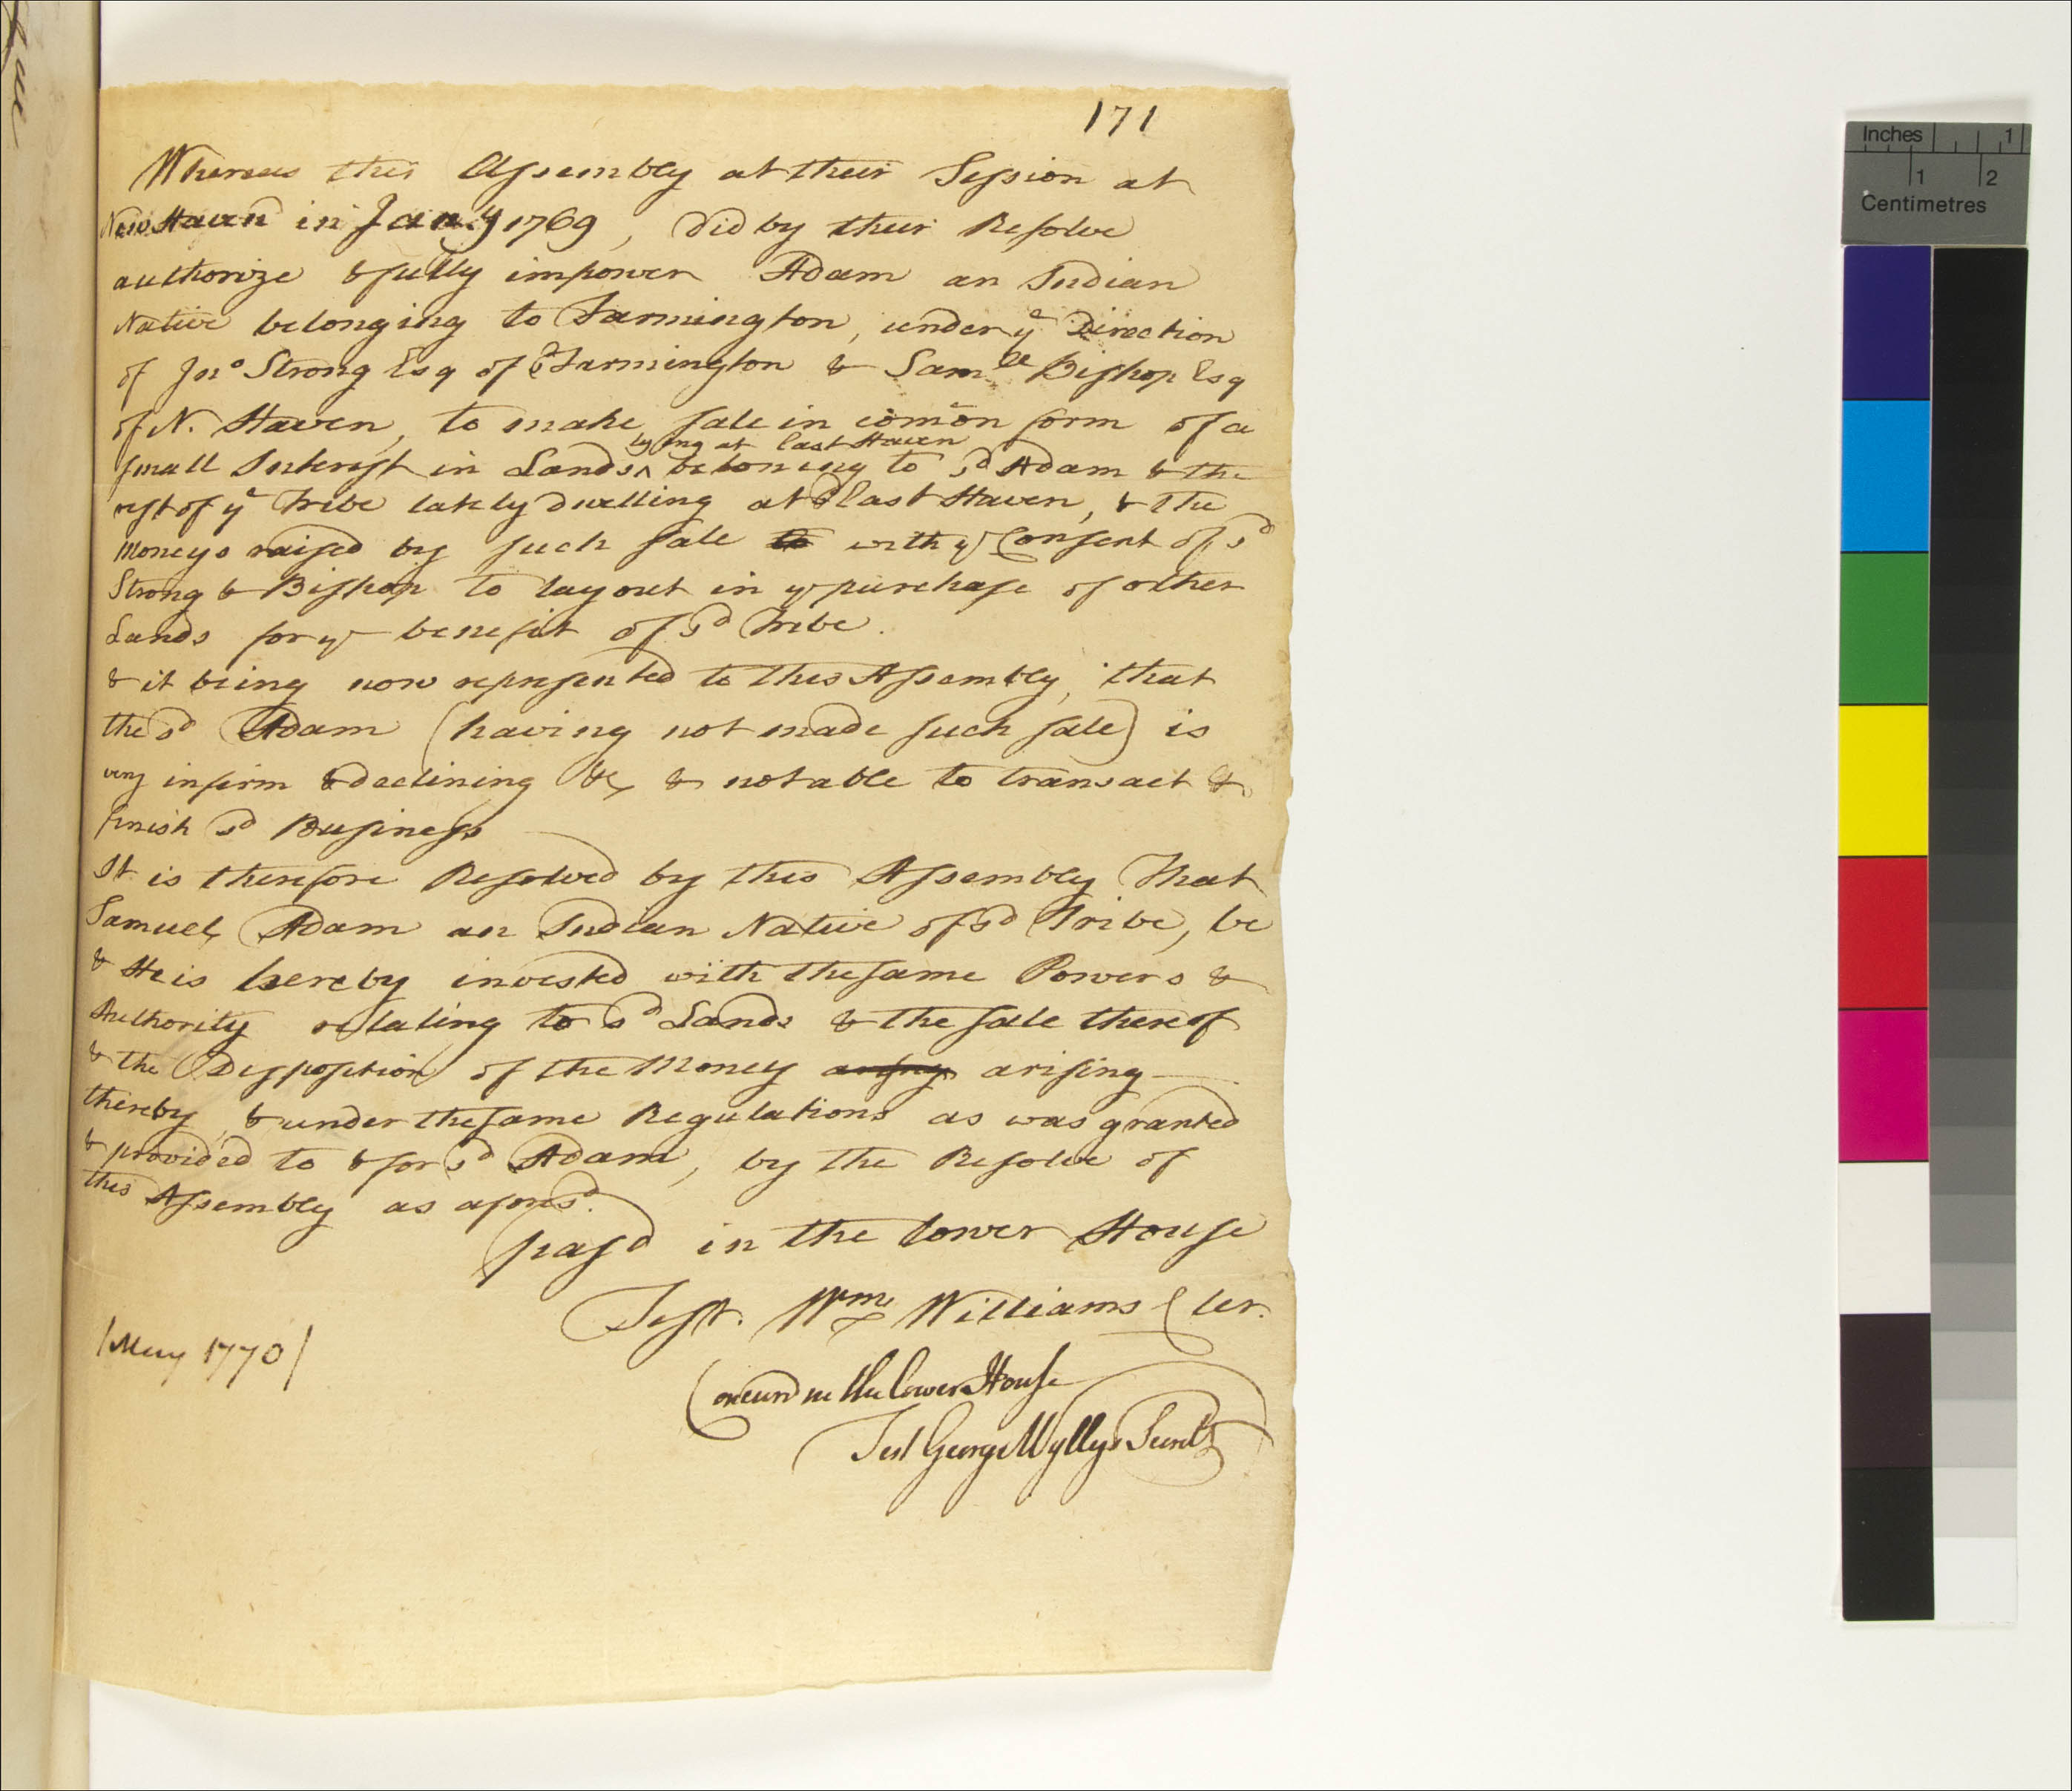 171
Whereas this Assembly at their Session at
New Haven in Jany 1769, did by their Resolve
authorize & fully impower Adam an Indian
Native belonging to Farmington, under ye Direction
of Jno Strong Esq of Farmington & Samll Bishop Esq
of N. Haven, to make sale in comon form of a
lying at East Haven
small Interest in Lands ^ beloning to sd Adam & the
rest of ye Tribe lately dwelling at East Haven, & the
Moneys raised by such sale to with ye Consent of sd
Strong & Bishop to lay out in ye purchase of other
Lands for ye benefit of sd Tribe.
& it being now represented to this Assembly, that
the sd Adam (having not made such sale) is
very infirm & declining &c, & not able to transact &
finish sd Business
It is therefore Resolved by this Assembly That
Samuel Adam an Indian Native of sd Tribe, be
& He is hereby invested with the same Powers &
Authority relating to sd Lands & the sale thereof
& the Disposition of the Money arising
thereby, & under the same Regulations as was granted
& provided to & for sd Adam, by the Resolve of
this Assembly as aforesd.
pass'd in the lower House
Test. Wm Williams Cler.
[May 1770]
Concurd in the lower House
Test George Wyllys Secrety